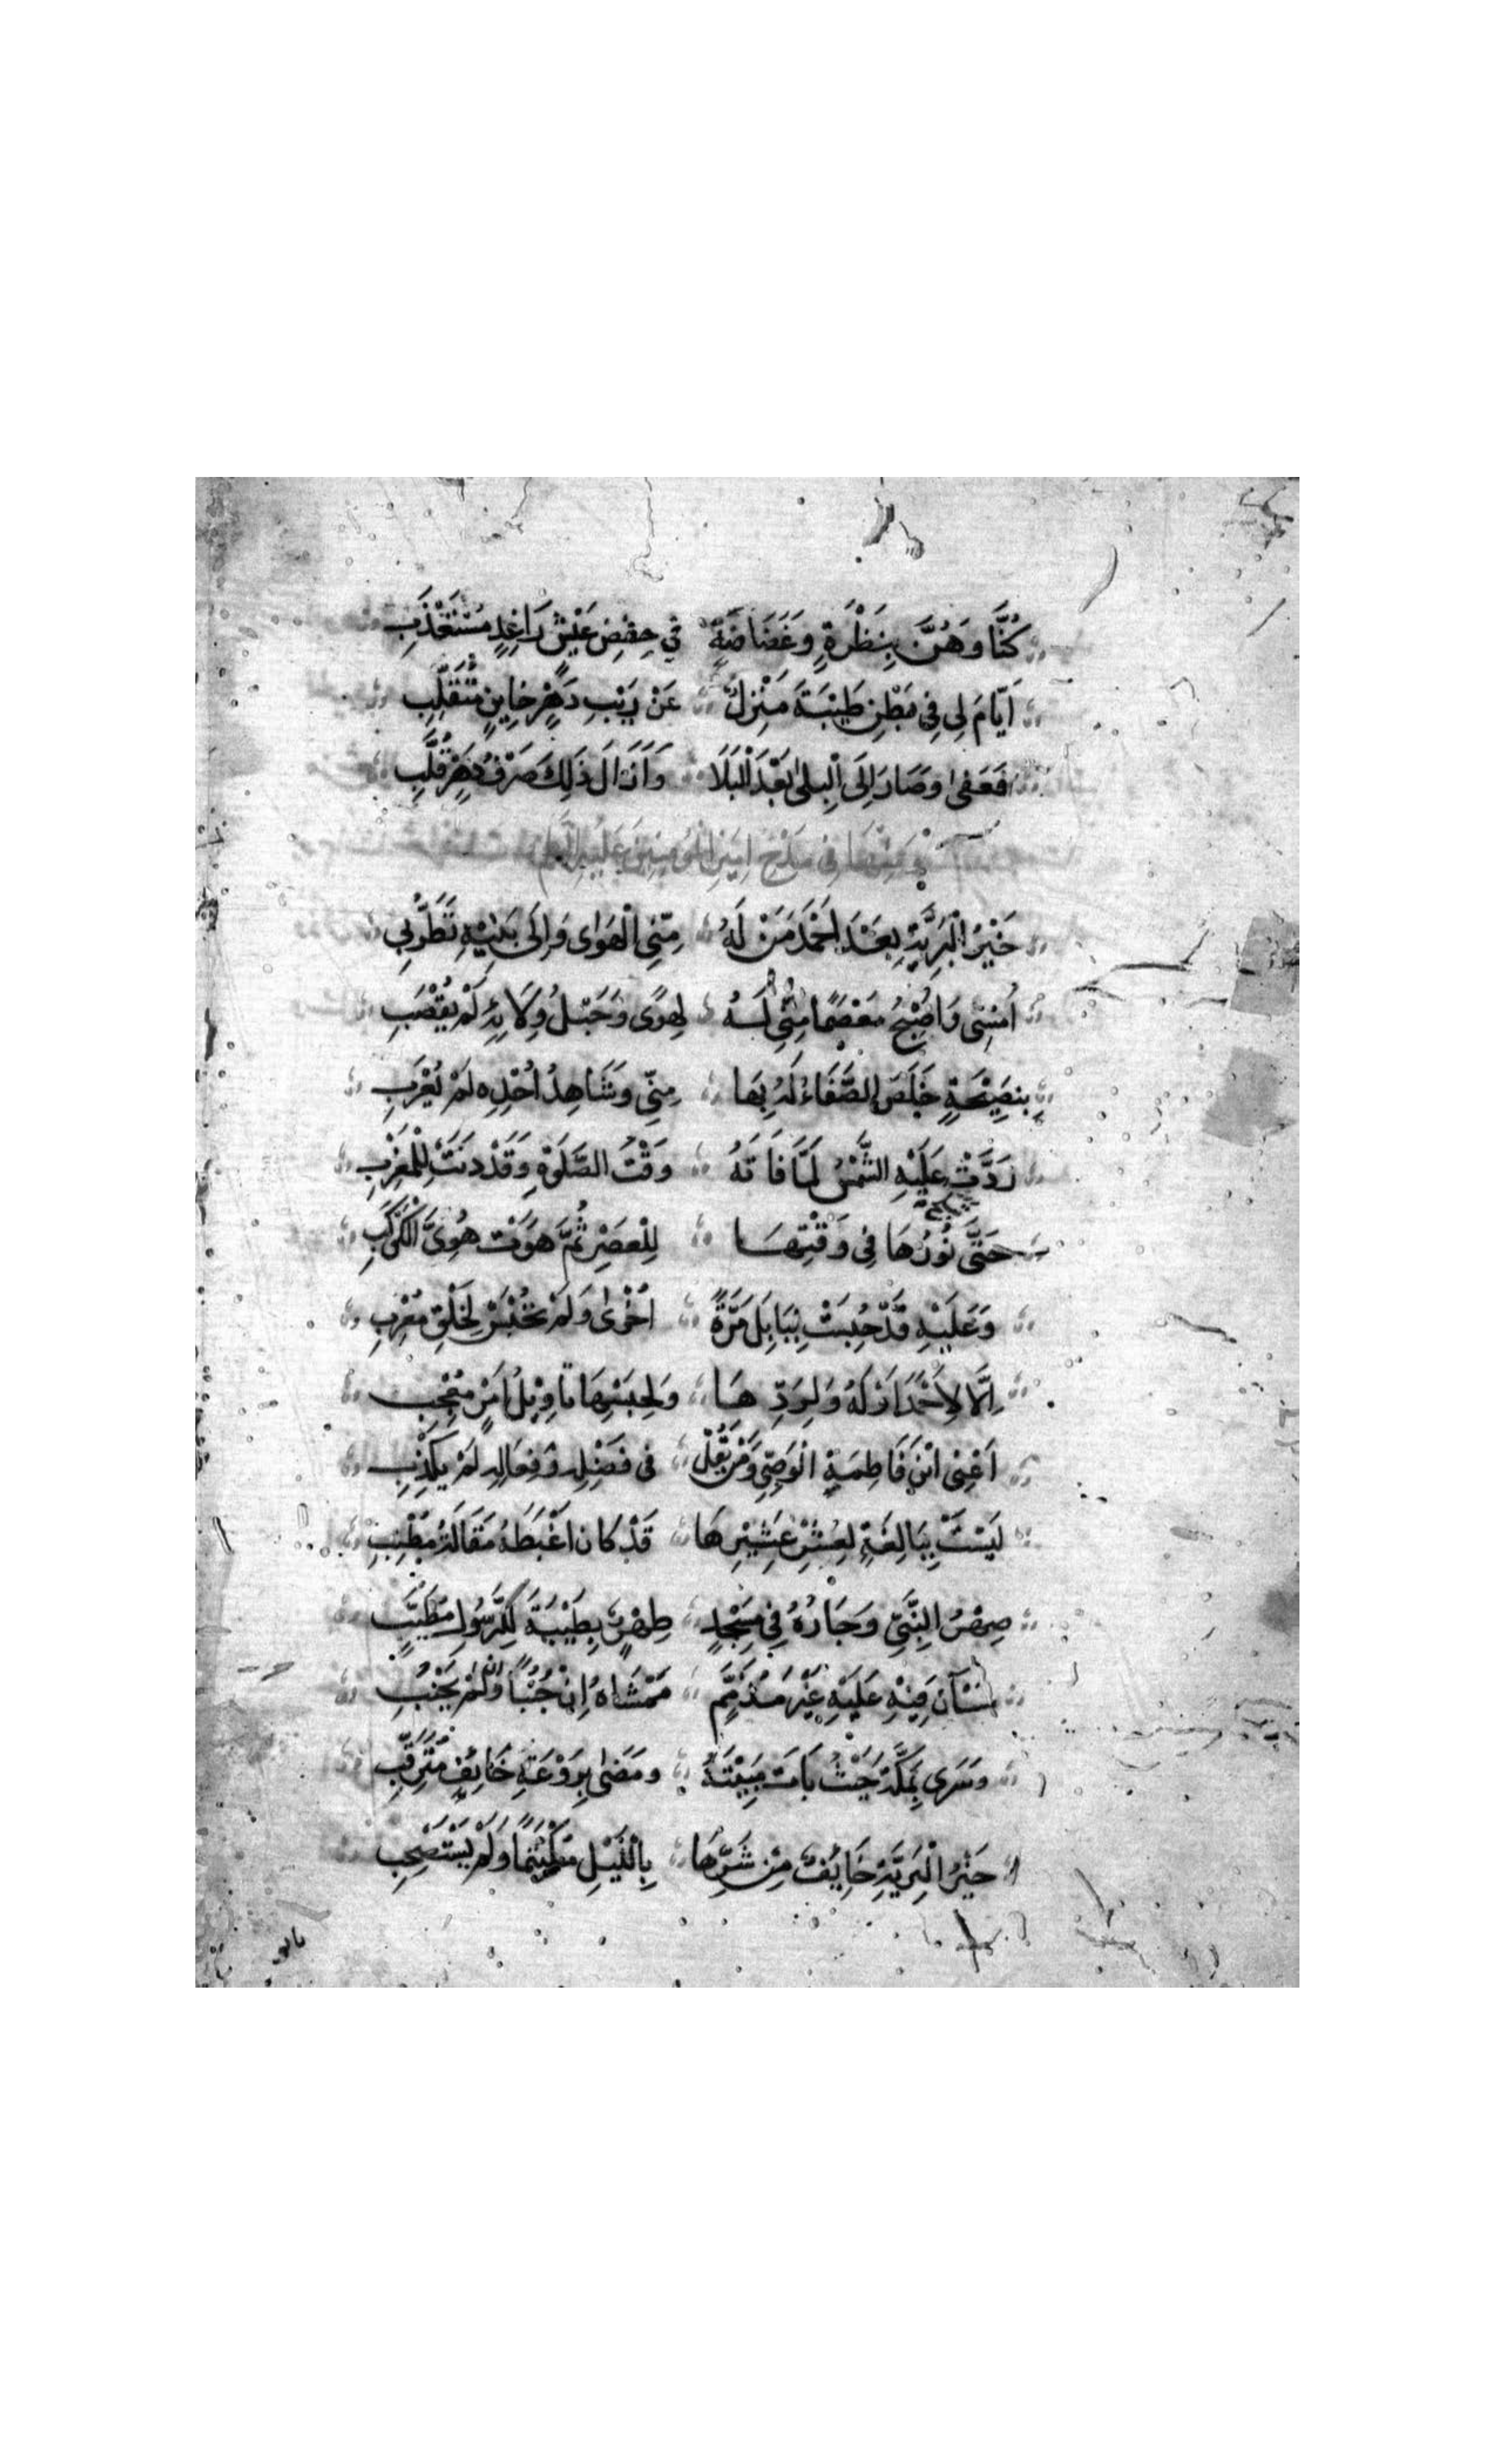 كُنَّا وَهُنَّ بِنَظْرَةٍ وَغَضَاضَةٍ فِي خِفْضِ عَيْشٍ رَاغِدٍ مُسْتَعْذَبِ
اَيَّامَ لِي فِي بَطْنِ طَيْبَةَ مَنْزِلٌ عَنْ رَيْبِ دَهْرٍ خَايِنٍ مُتَقَلِّبِ
فَعَفٰى وَصَارَ اِلَى الْبِلٰى بَعْدَ الْبَلَا وَاَزَالَ ذَلِكَ صَرْفُ دَهْرٍ قُلَّبِ
فِي مَدْحِ اَمِيرِ الْمُؤْمِنِينَ عَلَيْهِ السَّلَام
خَيْرُ الْبَرِيَّةِ بَعْدَ اَحْمَدَ مَنْ لَهُ مِنِّي الْهَوٰى وَاِلَى بَنِيْهِ تَطَرُّبِي
اُمْسِي وَاُصْبِحُ مُعْصَمًا مِنِّي لَهُ لِهَوًى وَحَبْلُ وِلَائِهِ لَمْ يُقْضَبِ
بِنَصِيْحَةٍ خَلَصَ الصَّفَاءُ لَهُ بِهَا مِنِّي وَشَاهِدُ اُخْذِهِ لَمْ يَعْزَبِ
رَدَّتْ عَلَيْهِ الشَّمْسُ لَمَّا فَاتَهُ وَقْتُ الصَّلٰوةِ وَقَدْ دَنَتْ لِلْمَغْرِبِ
حَتَّى نُوْرُهَا فِي وَقْتِهَا لِلْعَصْرِ ثُمَّ هَوَتْ هُوِىَّ الْكَوْكَبِ
وَعَلَيْهِ قَدْ حُبِسَتْ بِبَابِلَ مَرَّةً اُخْرٰى وَلَمْ تُحْبَسْ لِخَلْقٍ مُغْرِبِ
اِلَّا لِاَحْمَدَ اَوْ لَهُ وَلِرَدِّهَا وَلِحَبْسِهَا تَاوِيْلُ اَمْرٍ مُعْجِبِ
اَعْنِى ابْنَ فَاطِمَةِ الْوَصِيَّ وَمَنْ يَقُلْ فِي فَضْلِهِ وَفِعَالِهِ لَمْ يَكْذِبِ
لَيْسَتْ بِبَالِغَةٍ لِعُشْرِ عَشِيْرِهَا قَدْ كَانَ اَعْبَطَهُ مَقَالَةُ مُطْنِبِ
صِهْرُ النَّبِيِّ وَجَارُهُ فِي مَسْجِدٍ طُهْرٍ بِطَيْبَةَ لِلرَّسُوْلِ مُطَيَّبٍ
سَيَّانِ فِيْهِ عَلَيْهِ غَيْرَ مُذَمَّمٍ مَمْشَاهُ اِنْ جُنُبًا وَاِنْ لَمْ يُجْنِبِ
وَسَرٰى بِمَكَّةَ حَيْثُ بَاتَ مَبِيْتَهُ وَمَضٰى بِرَوْعَةِ خَائِفٍ مُتَرَقِّبِ
خَيْرُ الْبَرِيَّةِ خَائِفٌ مِنْ شَرِّهَا بِاللَّيْلِ مُكْتَتِمًا وَلَمْ يَسْتَصْحِبِ